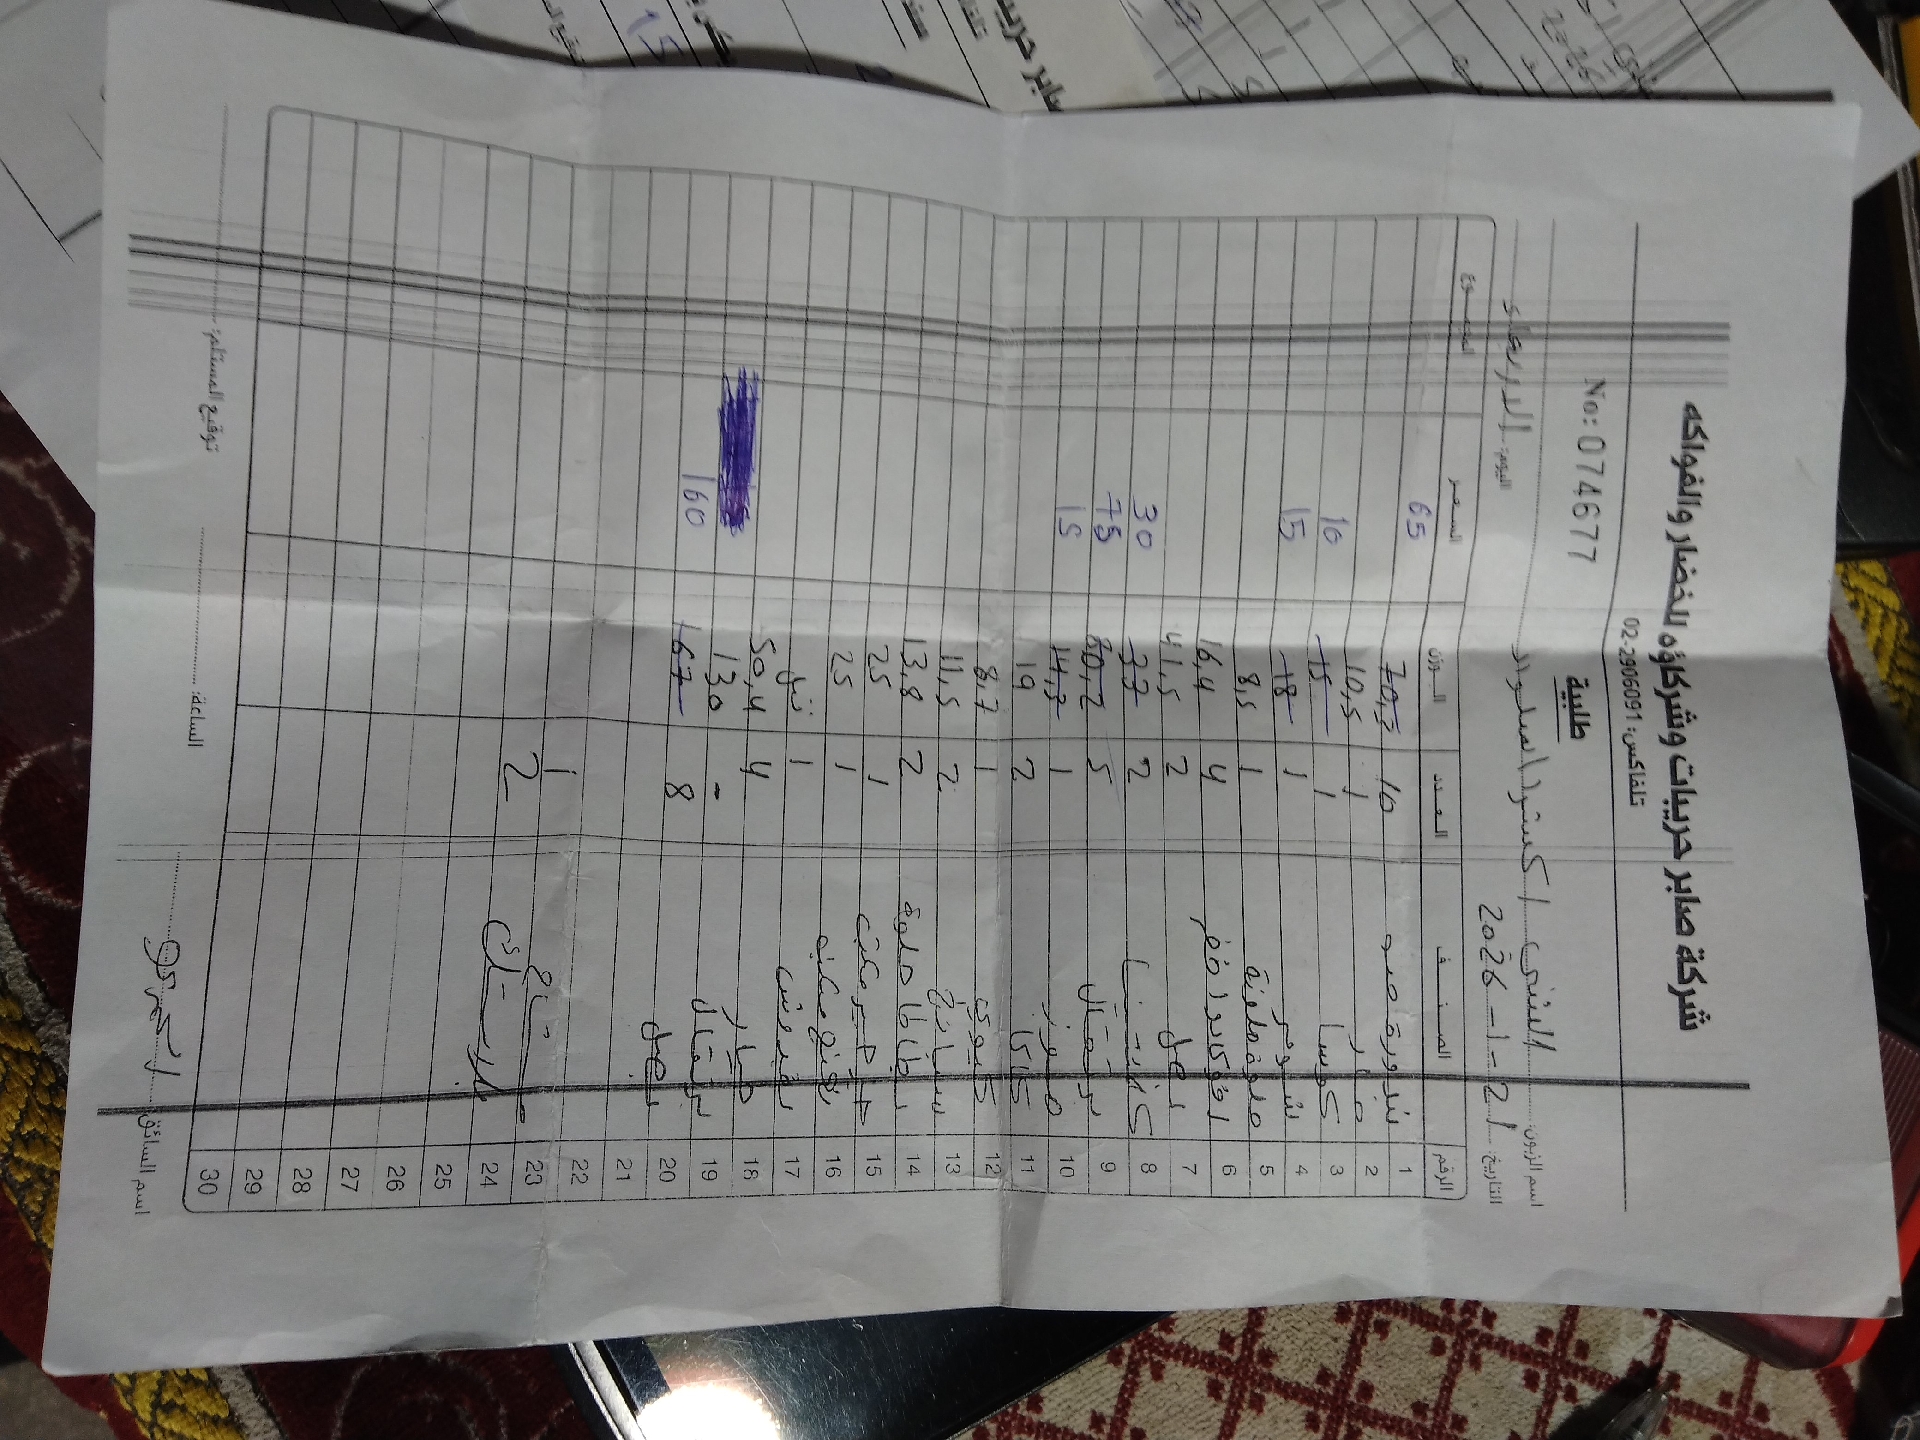 شركة صابر حريبات وشركاؤه للخضار والفواكه
تلفاكس: 02-2906091
طلبية
No: 074677
اسم الزبون: الشني اكسترا
اليوم: الاربعاء
التاريخ: 2026-1-21
الرقم الصنف العدد الوزن السعر المجموع
1 بندورة 10 70,5 65
2 خيار 1 10,5
3 كوسا 1 15 10
4 شومر 1 18 15
5 ملوفة 1 8,5
6 4 16,4
7 بصل 2 41,5
8 كلمنتينا 2 37 30
9 برتقال 5 80,2 75
10 موز 1 14,3 15
11 كاكا 2 19
12 كيوي 1 8,7
13 سبانخ 2 11,5
14 بطاطا حلوة 2 13,8
15 1 25
16 1 25
17 بقدونس 1
18 خيار 4 50,4
19 برتقال - 130
20 بصل 8 167 160
21
22
23 1
24 2
25
26
27
28
29
30
اسم السائق: الساعة: توقيع المستلم: